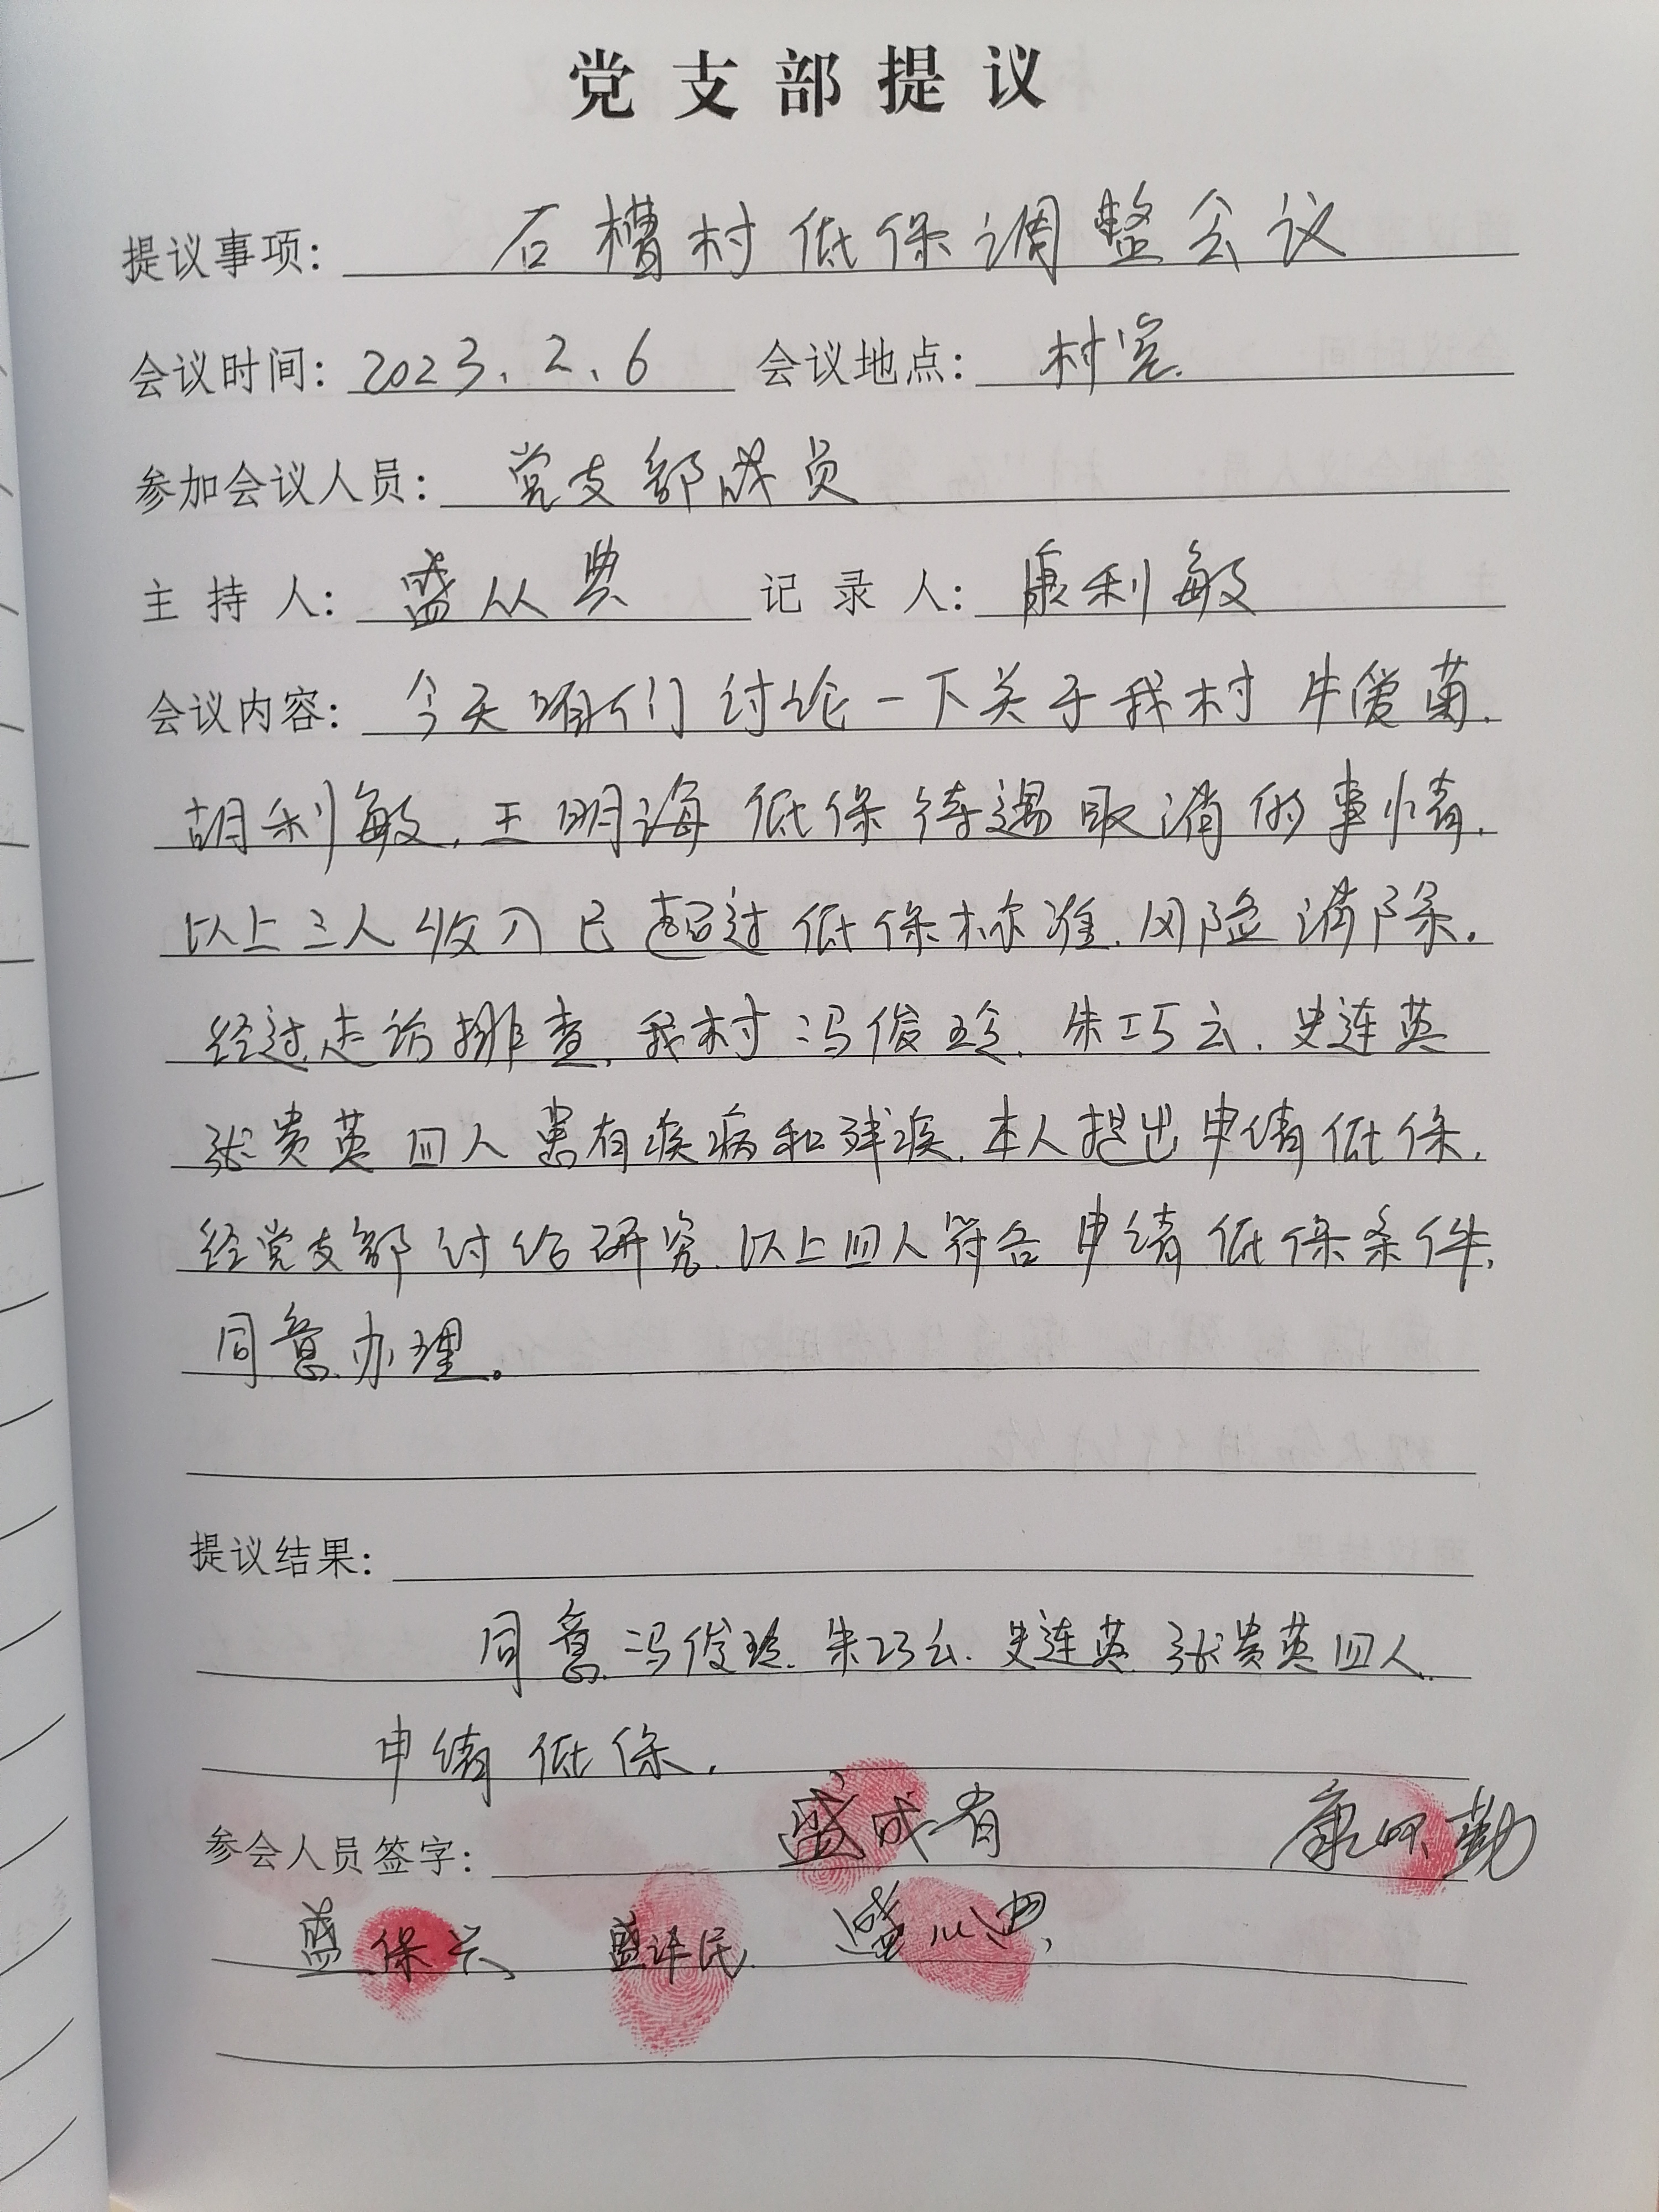 党支部提议
提议事项: 石槽村低保调整会议
会议时间: 2023、2、6 会议地点: 村室.
参加会议人员: 党支部成员
主持人: 盛从典 记录人: 康利敏
会议内容: 今天咱们讨论一下关于我村牛爱菊.
胡利敏.王明海低保待遇取消的事情.
以上三人收入已超过低保标准.风险消除.
经过走访排查,我村冯俊玲.朱巧云.史连英
张贵英四人患有疾病和残疾.本人提出申请低保.
经党支部讨论研究.以上四人符合申请低保条件,
同意办理。
提议结果:
同意冯俊玲.朱巧云.史连英.张贵英四人.
申请低保.
参会人员签字: 盛成有 康 勤
盛保兴 盛泽民 盛从典